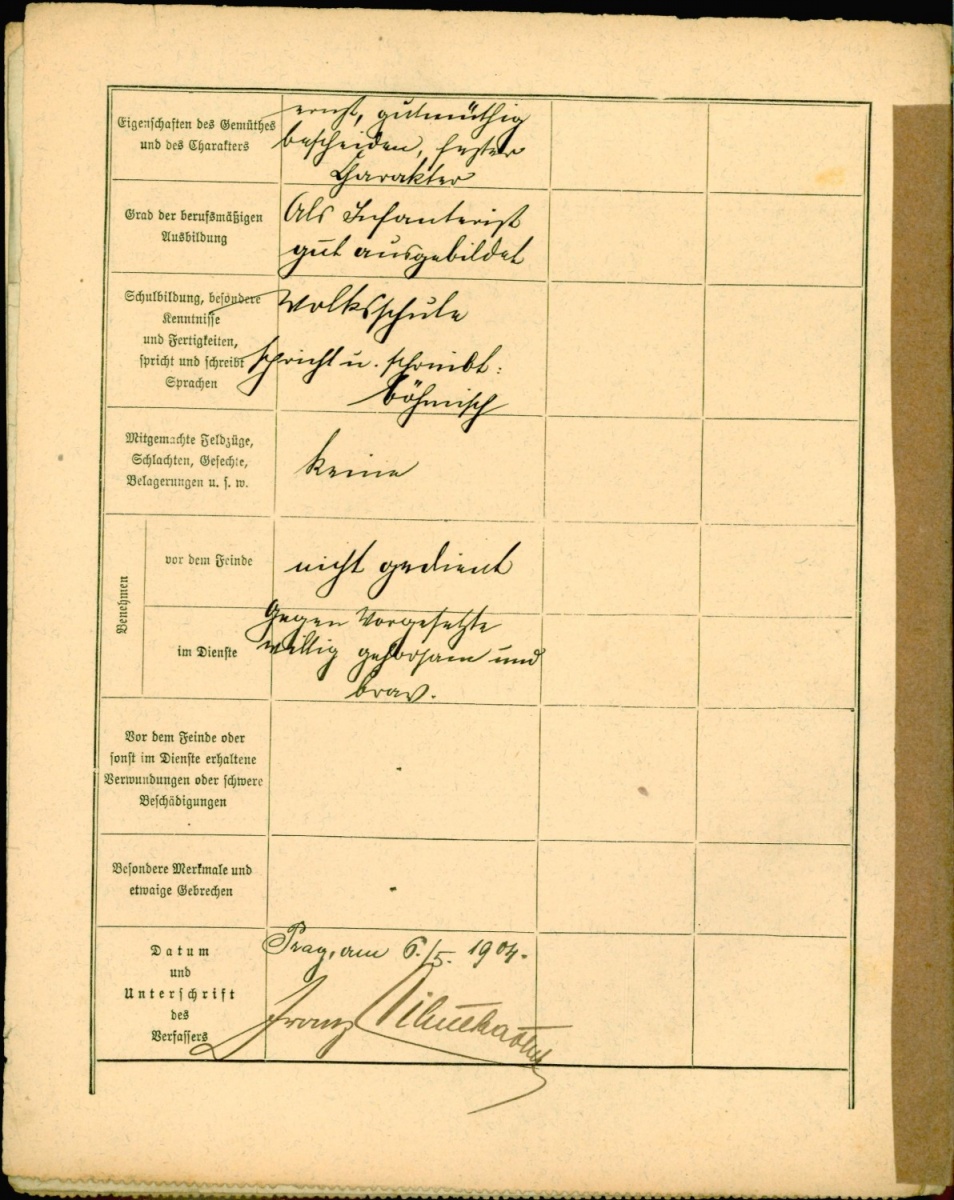 Eigenschaften des Gemüthes
und des Charakters
ernst, gutmüthig
bescheiden, fester
Charakter
Grad der berufsmäßigen
Ausbildung
Als Infanterist
gut ausgebildet
Schulbildung, besondere
Kenntnisse
und Fertigkeiten,
spricht und schreibt
Sprachen
Volksschule
spricht u. schreibt:
böhmisch
Mitgemachte Feldzüge,
Schlachten, Gefechte,
Belagerungen u. s. w.
keine
Benehmen
vor dem Feinde
nicht gedient
im Dienste
Gegen Vorgesetzte
willig gehorsam und
brav.
Vor dem Feinde oder
sonst im Dienste erhaltene
Verwundungen oder schwere
Beschädigungen
Besondere Merkmale und
etwaige Gebrechen
Datum
und
Unterschrift
des
Verfassers
Prag, am 6./5. 1904.
Franz